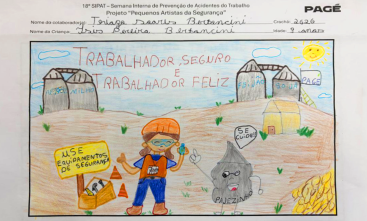 18ª SIPAT – Semana Interna de Prevenção de Acidentes do Trabalho
Projeto "Pequenos Artistas da Segurança"
PAGÉ
Nome do colaborador: Thiago Soares Bertancini Crachá: 2626
Nome da Criança: Isis Pereira Bertancini Idade: 9 anos
TRABALHADOR SEGURO
E
TRABALHADOR FELIZ
PAGÉ
USE
EQUIPAMENTOS
DE SEGURANÇA
SE
CUIDEM
PAJEZINHO